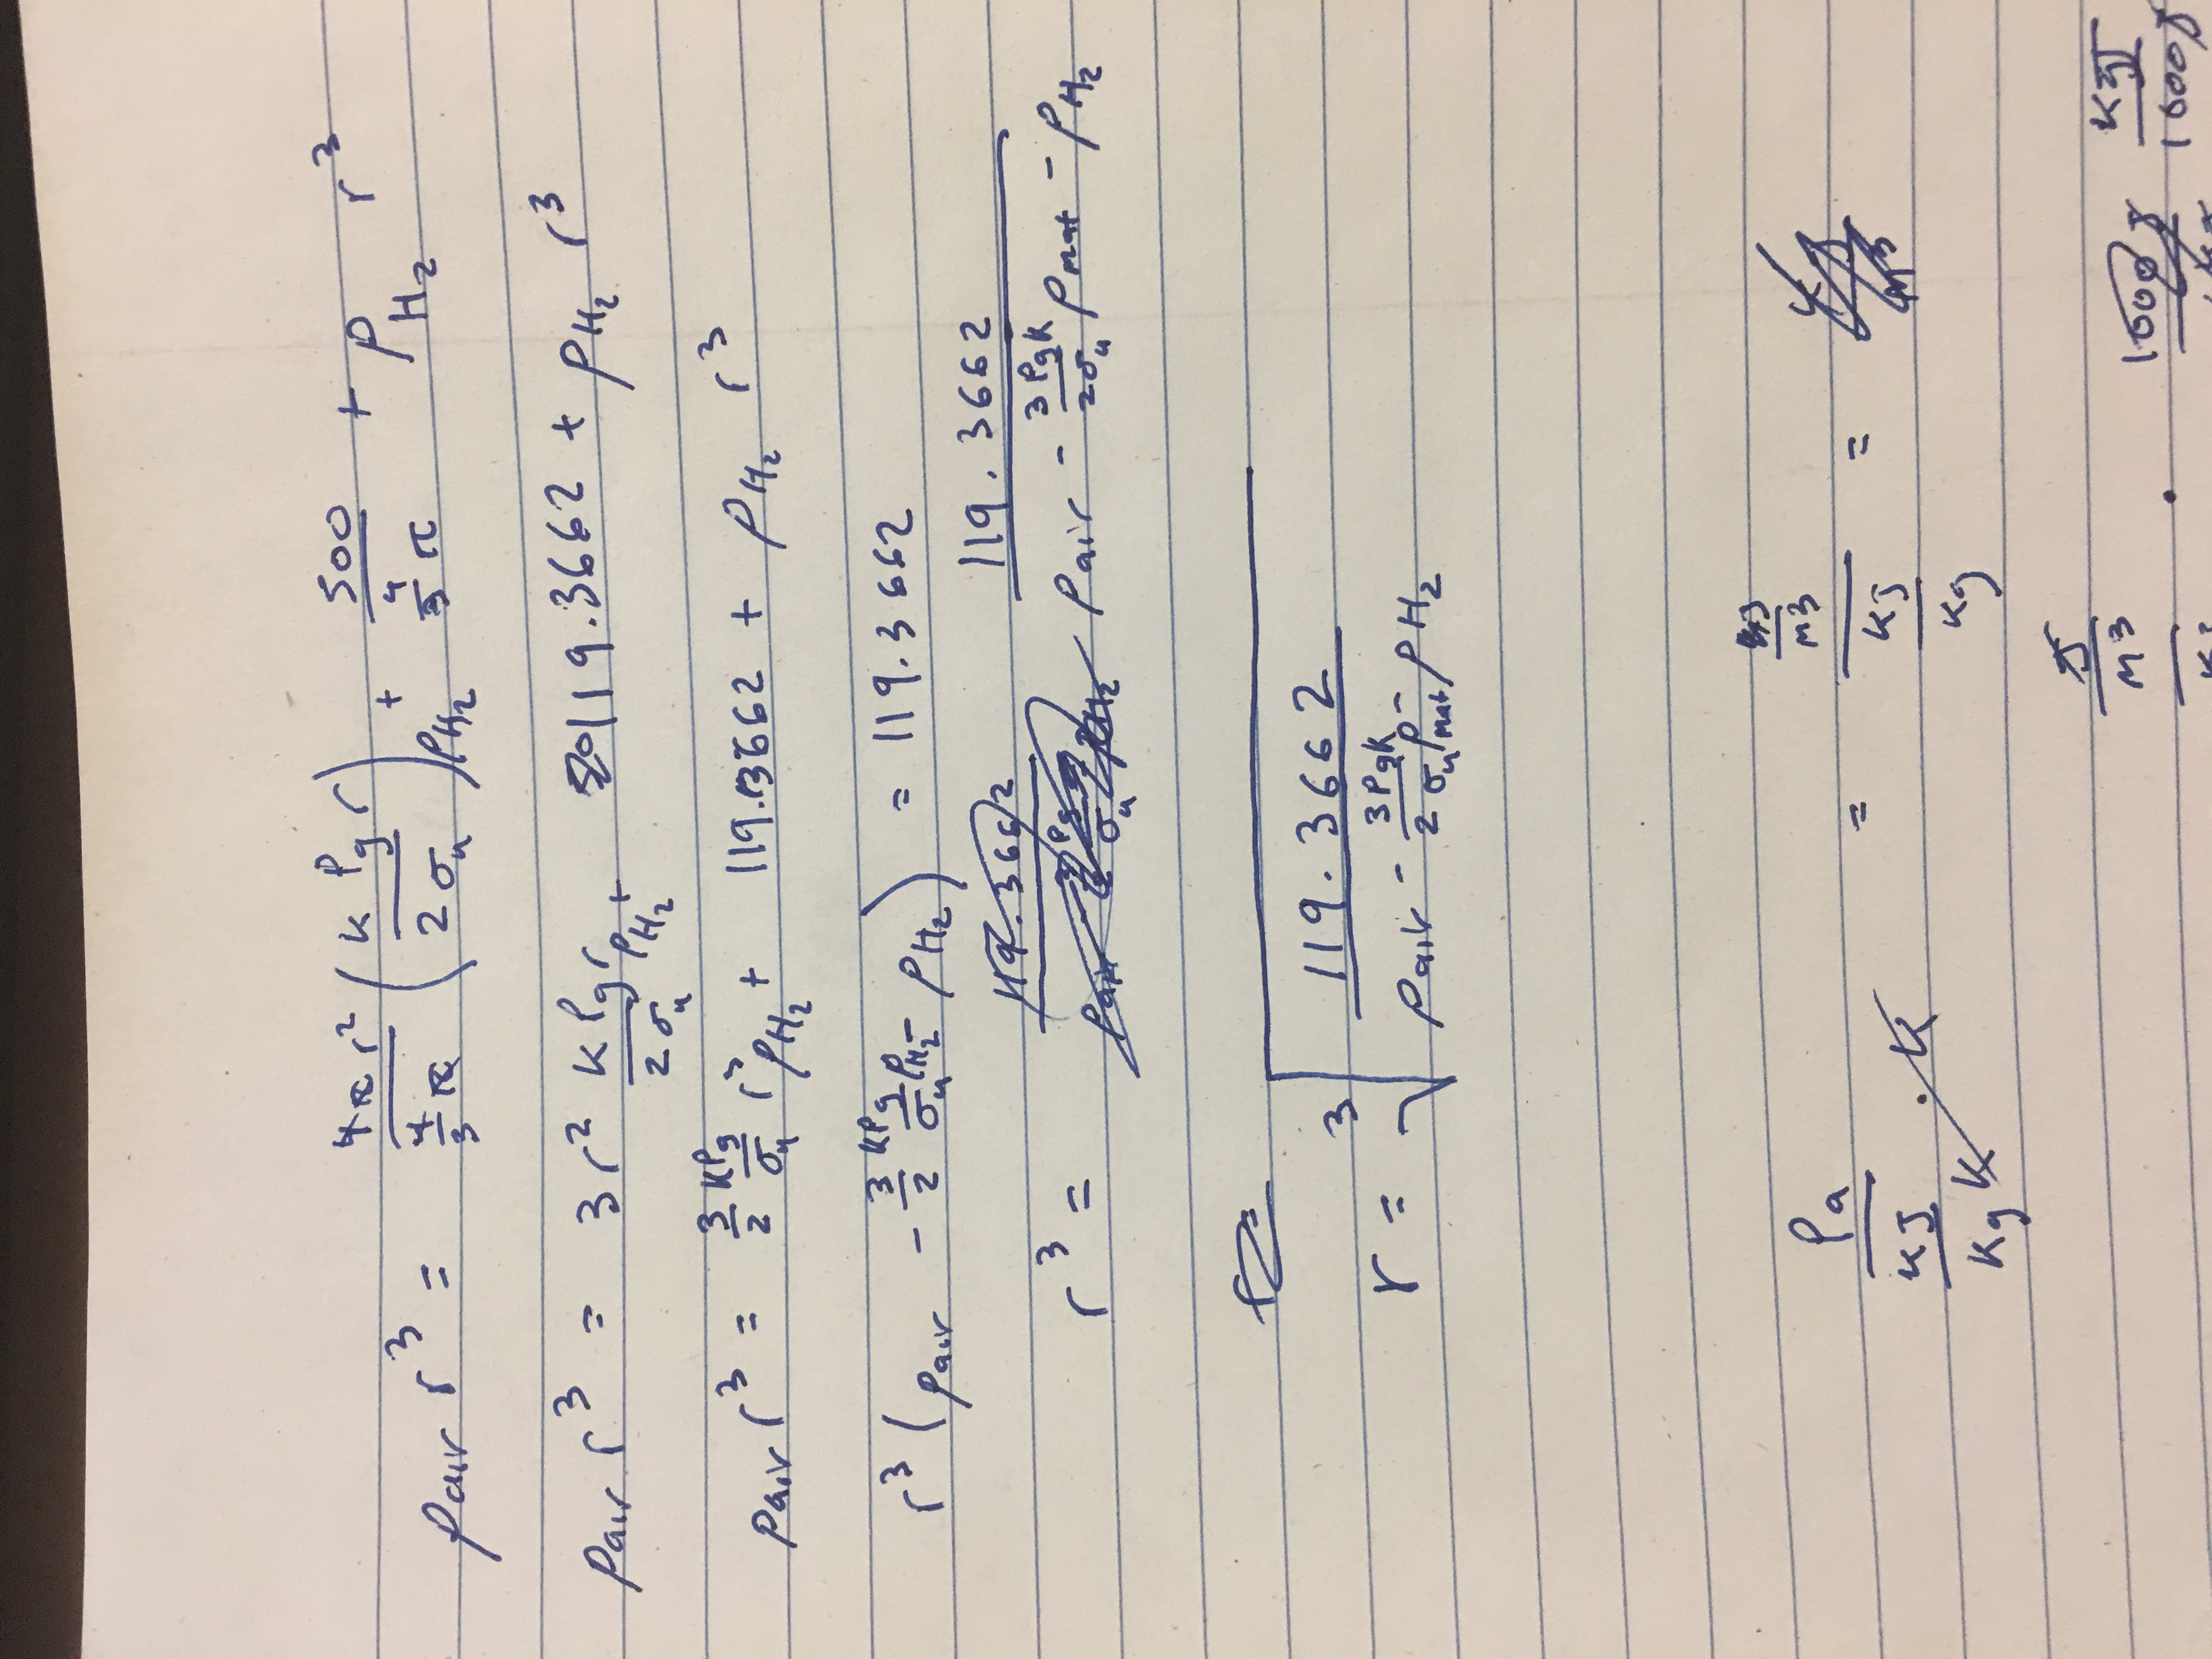 ρair r³ = 4π r² / 4/3 π (k Pg r / 2 σu) ρH₂ + 500 / 4/3 π + ρH₂ r³
ρair r³ = 3r² k Pg r / 2 σu ρH₂ + 119.3662 + ρH₂ r³
ρair r³ = 3/2 KPg / σu r³ ρH₂ + 119.3662 + ρH₂ r³
r³ (ρair - 3/2 KPg / σu ρH₂ - ρH₂) = 119.3662
r³ = 119.3662 / ρair - 3PgK / 2σu ρmat - ρH₂
r = ³√ 119.3662 / ρair - 3PgK / 2 σu ρmat - ρH₂
Pa / kJ / kg K · K = J / m³ / kJ / kg =
J / m³ / kJ · kJ / 1000J